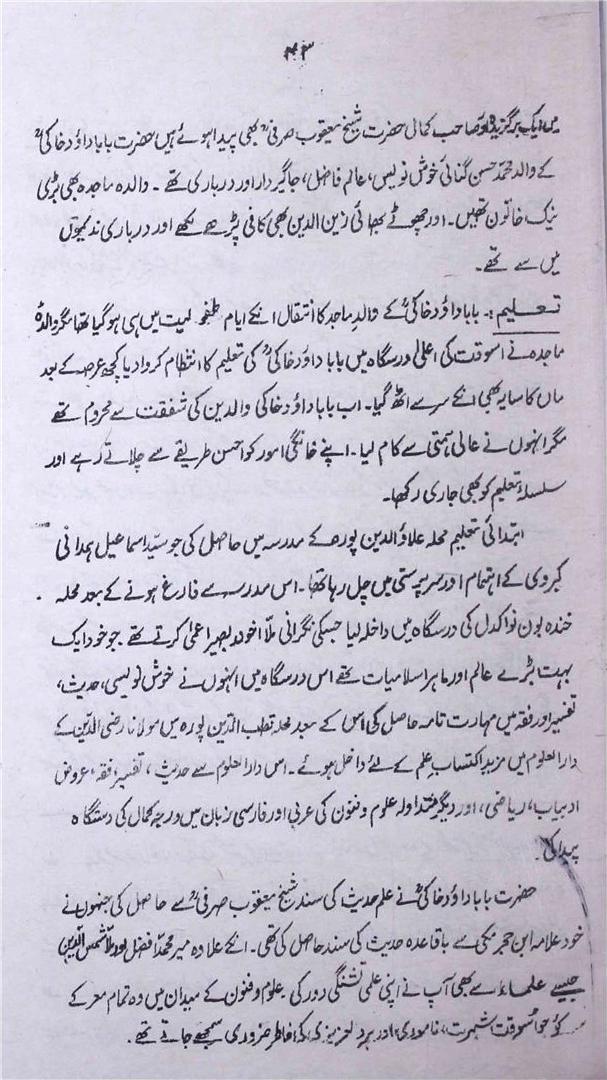 ۴۳
میں ایک برگزیدہ اور صاحب کمال حضرت شیخ یعقوب صرفیؒ بھی پیدا ہوئے ہیں حضرت بابا داؤد خاکیؒ
کے والد محمد حسن گنائی خوش نویس، عالم فاضل، جاگیردار اور درباری تھے۔ والدہ ماجدہ بھی بڑی
نیک خاتون تھیں۔ اور چھوٹے بھائی زین الدین بھی کافی پڑھے لکھے اور درباری ندیموں
میں سے تھے۔
تعلیم:۔ بابا داؤد خاکیؒ کے والد ماجد کا انتقال انکے ایام طفولیت میں ہی ہو گیا تھا مگر والدہ
ماجدہ نے اسوقت کی اعلیٰ درسگاہ میں بابا داؤد خاکیؒ کی تعلیم کا انتظام کروا دیا کچھ عرصہ کے بعد
ماں کا سایہ بھی انکے سر سے اٹھ گیا۔ اب بابا داؤد خاکی والدین کی شفقت سے محروم تھے
مگر انہوں نے عالی ہمتی سے کام لیا۔ اپنے خانگی امور کو احسن طریقے سے چلاتے رہے اور
سلسلۂ تعلیم کو بھی جاری رکھا۔
ابتدائی تعلیم محلہ علاؤالدین پورہ کے مدرسہ میں حاصل کی جو سید اسماعیل ہمدانی
کبروی کے اہتمام اور سرپرستی میں چل رہا تھا۔ اس مدرسے سے فارغ ہونے کے بعد محلہ
خندہ بون نواکدل کی درسگاہ میں داخلہ لیا جسکی نگرانی ملا اخوند بصیر اعمیٰ کرتے تھے جو خود ایک
بہت بڑے عالم اور ماہر اسلامیات تھے اس درسگاہ میں انہوں نے خوش نویسی، حدیث،
تفسیر اور فقہ میں مہارت تامہ حاصل کی اس کے بعد محلہ قطب الدین پورہ میں مولانا رضی الدین کے
دارالعلوم میں مزید اکتساب علم کے لئے داخل ہوئے۔ اس دارالعلوم سے حدیث، تفسیر، فقہ، عروض
ادبیات، ریاضی، اور دیگر متداولہ علوم و فنون کی عربی اور فارسی زبان میں درجہ کمال کی دستگاہ
پیدا کی۔
حضرت بابا داؤد خاکیؒ نے علم حدیث کی سند شیخ یعقوب صرفیؒ سے حاصل کی جنہوں نے
خود علامہ ابن حجر مکی سے باقاعدہ حدیث کی سند حاصل کی تھی۔ انکے علاوہ میر محمد افضل اور ملا شمس الدین
جیسے علماء سے بھی آپ نے اپنی علمی تشنگی دور کی۔ علوم و فنون کے میدان میں وہ تمام معرکے
سر کئے جو اسوقت شہرت، ناموری اور ہر دلعزیزی کی خاطر ضروری سمجھے جاتے تھے۔